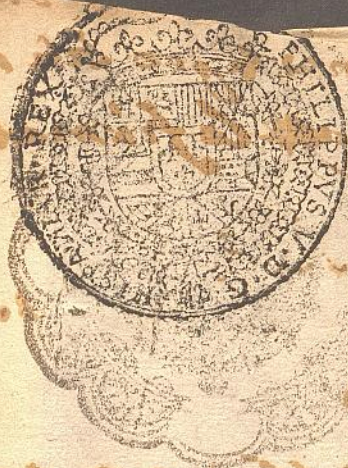 PHILIPPVS V D G
HISPANIARVM REX